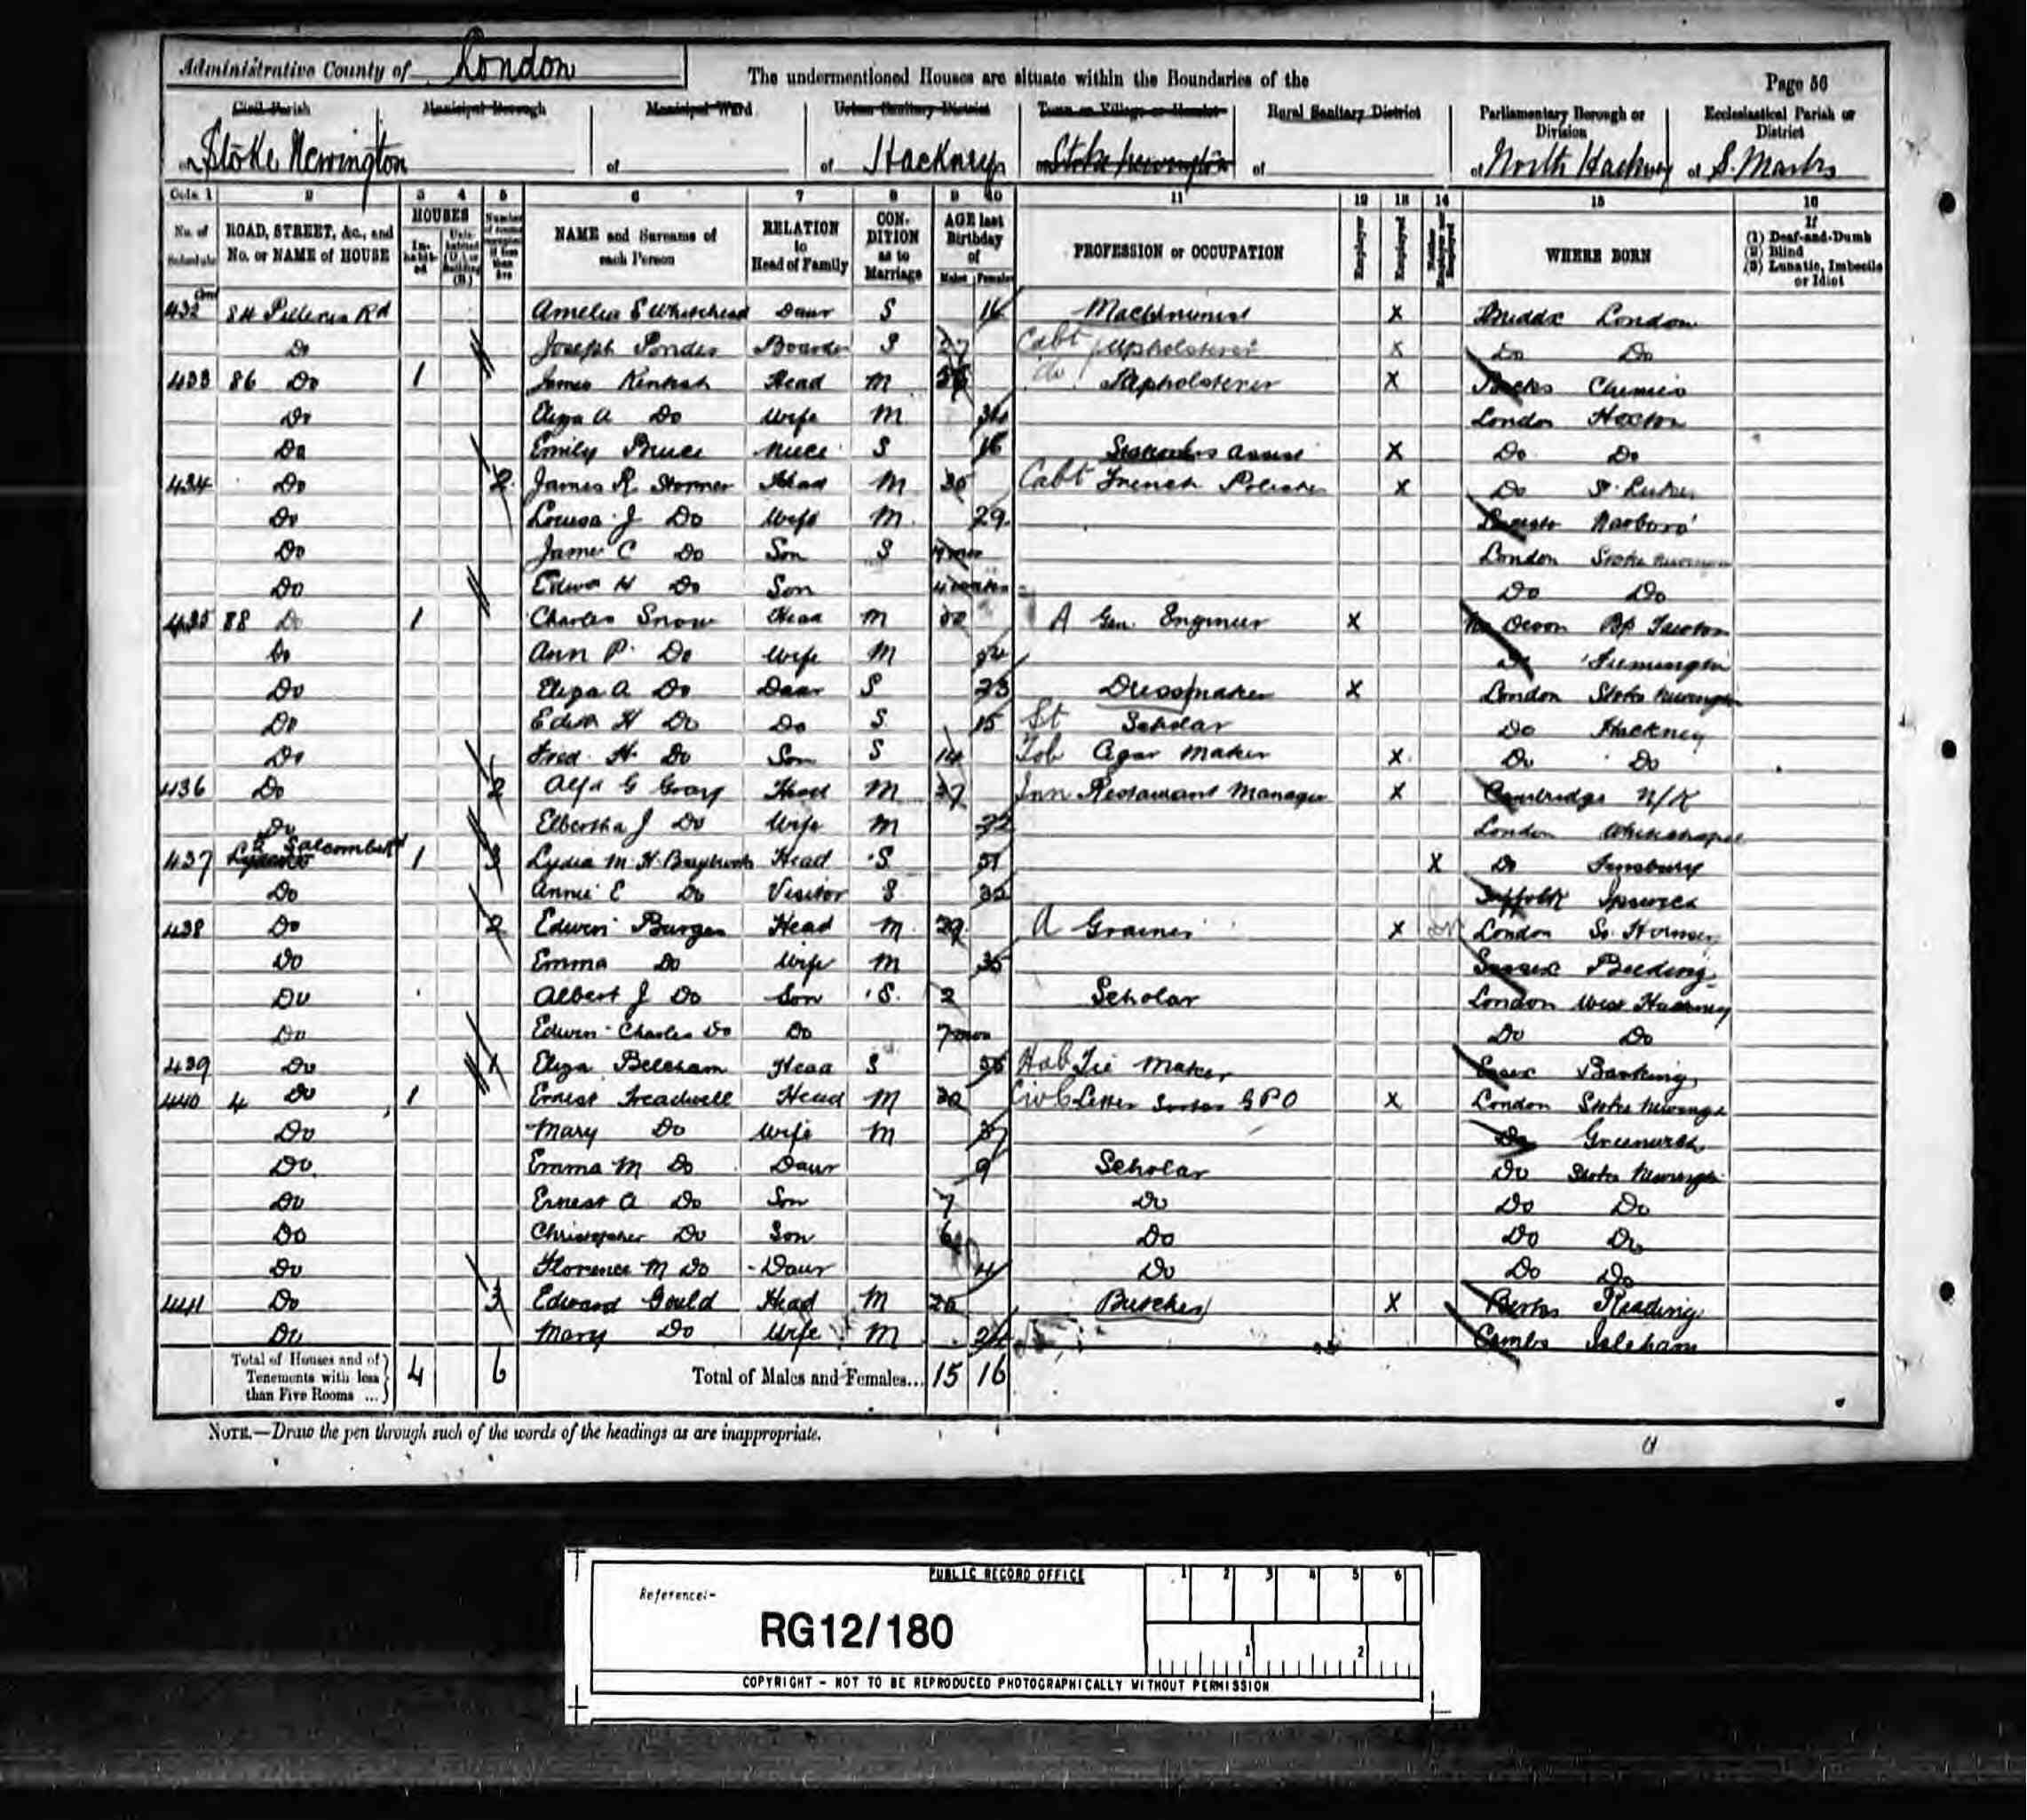 Administrative County of London
The undermentioned Houses are situate within the Boundaries of the
Page 56
Civil Parish
Municipal Borough
Municipal Ward
Urban Sanitary District
Town or Village or Hamlet
Rural Sanitary District
Parliamentary Borough or Division
Ecclesiastical Parish or District
of Stoke Newington
of
of Hackney
of Stoke Newington
of
of North Hackney
of S. Marks
Cols. 1 2 3 4 5 6 7 8 9 10 11 12 13 14 15 16
No. of Schedule
ROAD, STREET, &c., and No. or NAME of HOUSE
HOUSES
Inhabited
NAME and Surname of each Person
RELATION to Head of Family
CONDITION as to Marriage
AGE last Birthday of
Males Females
PROFESSION or OCCUPATION
Employer
Employed
Neither Employer nor Employed
WHERE BORN
If (1) Deaf-and-Dumb (2) Blind (3) Lunatic, Imbecile or Idiot
432 84 Rd Amelia E Whitehead Daur S 16 Machinist X Middx London
Do Joseph Boarder S 27 Cabt Upholsterer X Do Do
433 86 Do 1 James Head M do Upholsterer X Bucks
Do Eliza A Do Wife M London Hoxton
Do Emily Bruce Niece S 16 Assist X Do Do
434 Do 2 James R Head M 30 Cabt French Polisher X Do St. Lukes
Do Louisa J Do Wife M 29
Do James C Do Son S London Stoke Newington
Do H Do Son Do Do
435 88 Do 1 Charles Snow Head M A Gen. Engineer X Devon
Do Ann P. Do Wife M
Do Eliza A Do Daur S 23 Dressmaker X London Stoke Newington
Do Edith H Do Do S 15 St Scholar Do Hackney
Do Fred. H. Do Son S 14 Tob Cigar Maker X Do Do
436 Do 2 Alfd G Head M 37 Inn Restaurant Manager X Cambridge N/K
Do J Do Wife M 32 London Whitechapel
437 2 Salcombe Rd 1 3 Lydia M. H. Head S 51 X Do Finsbury
Do Annie E Do Visitor S 32 Suffolk Ipswich
438 Do 2 Edwin Burges Head M 29 A Grainer X London
Do Emma Do Wife M 35 Sussex Beeding
Do Albert J Do Son S 2 Scholar London West Hackney
Do Edwin Charles Do Do 7 mos Do Do
439 Do 1 Eliza Head S 56 Hab Tie Maker Essex Barking
440 4 Do 1 Ernest Treadwell Head M 32 Civ C Letter Sorter GPO X London Stoke Newington
Do Mary Do Wife M Do Greenwich
Do Emma M Do Daur 9 Scholar Do Stoke Newington
Do Ernest A Do Son 7 Do Do Do
Do Christopher Do Son 6 Do Do Do
Do Florence M Do Daur 4 Do Do Do
441 Do 3 Edward Gould Head M 26 Butcher X Berks Reading
Do Mary Do Wife M 24 Cambs Isleham
Total of Houses and of Tenements with less than Five Rooms ... 4 6 Total of Males and Females... 15 16
NOTE.—Draw the pen through such of the words of the headings as are inappropriate.
PUBLIC RECORD OFFICE
Reference:-
RG12/180
1 2 3 4 5 6
1 2
COPYRIGHT - NOT TO BE REPRODUCED PHOTOGRAPHICALLY WITHOUT PERMISSION